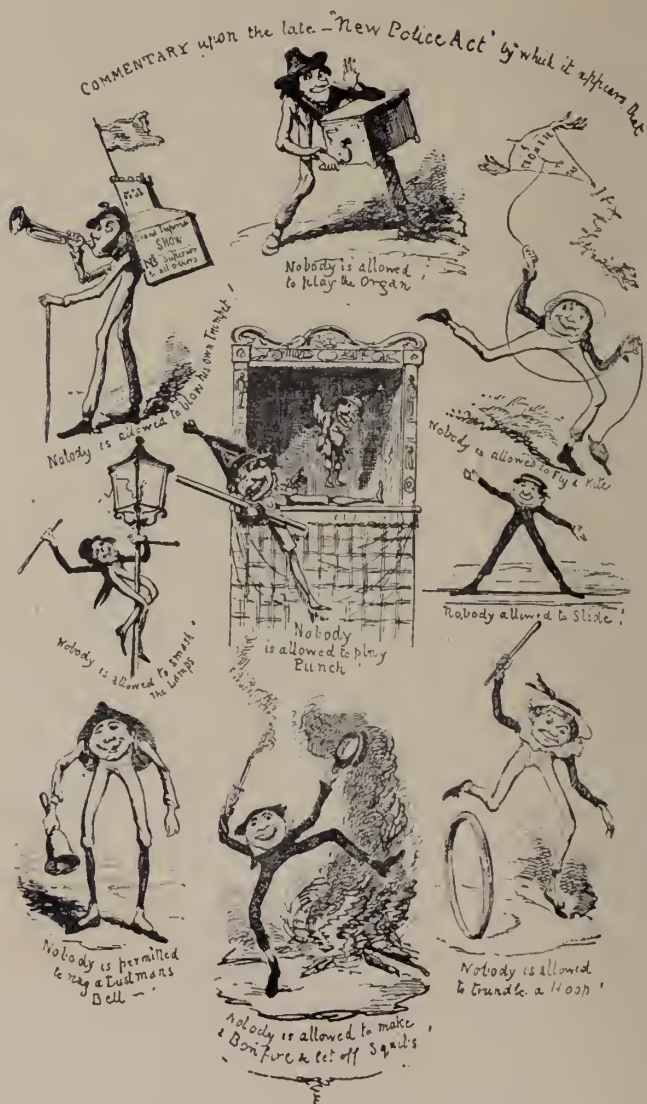 COMMENTARY upon the late - "New Police Act" by which it appears that
Nobody is allowed
to play the Organ!
Grand Imperial
SHOW
NB Superior
to all others
Nobody is allowed to blow his own Trumpet!
Nobody is allowed to Fly a Kite
Nobody is allowed to smash
The Lamps!
Nobody
is allowed to play
Punch!
Nobody allowed to Slide!
Nobody is permitted
to ring a Dustmans
Bell -
Nobody is allowed to make
a Bonfire & let off Squibs!
Nobody is allowed
to trundle a Hoop!